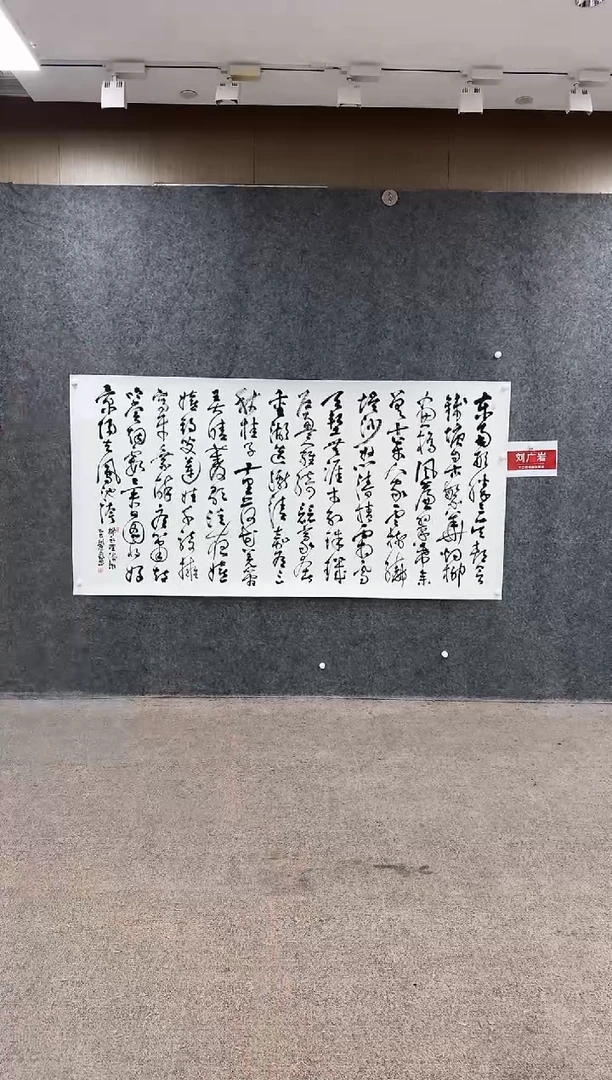 东南形胜三吴都会
錢塘自古繁華烟柳
画橋風簾翠幕参
差十万人家雲树繞
堤沙怒涛卷霜雪
天塹無涯市列珠璣
户盈羅綺競豪奢
重湖叠巘清嘉有三
秋桂子十里荷花羌管
弄晴菱歌泛夜嬉
嬉钓叟蓮娃千骑拥
高牙乘醉听箫鼓
吟賞烟霞异日圖将好
景归去鳳池夸
刘广岩